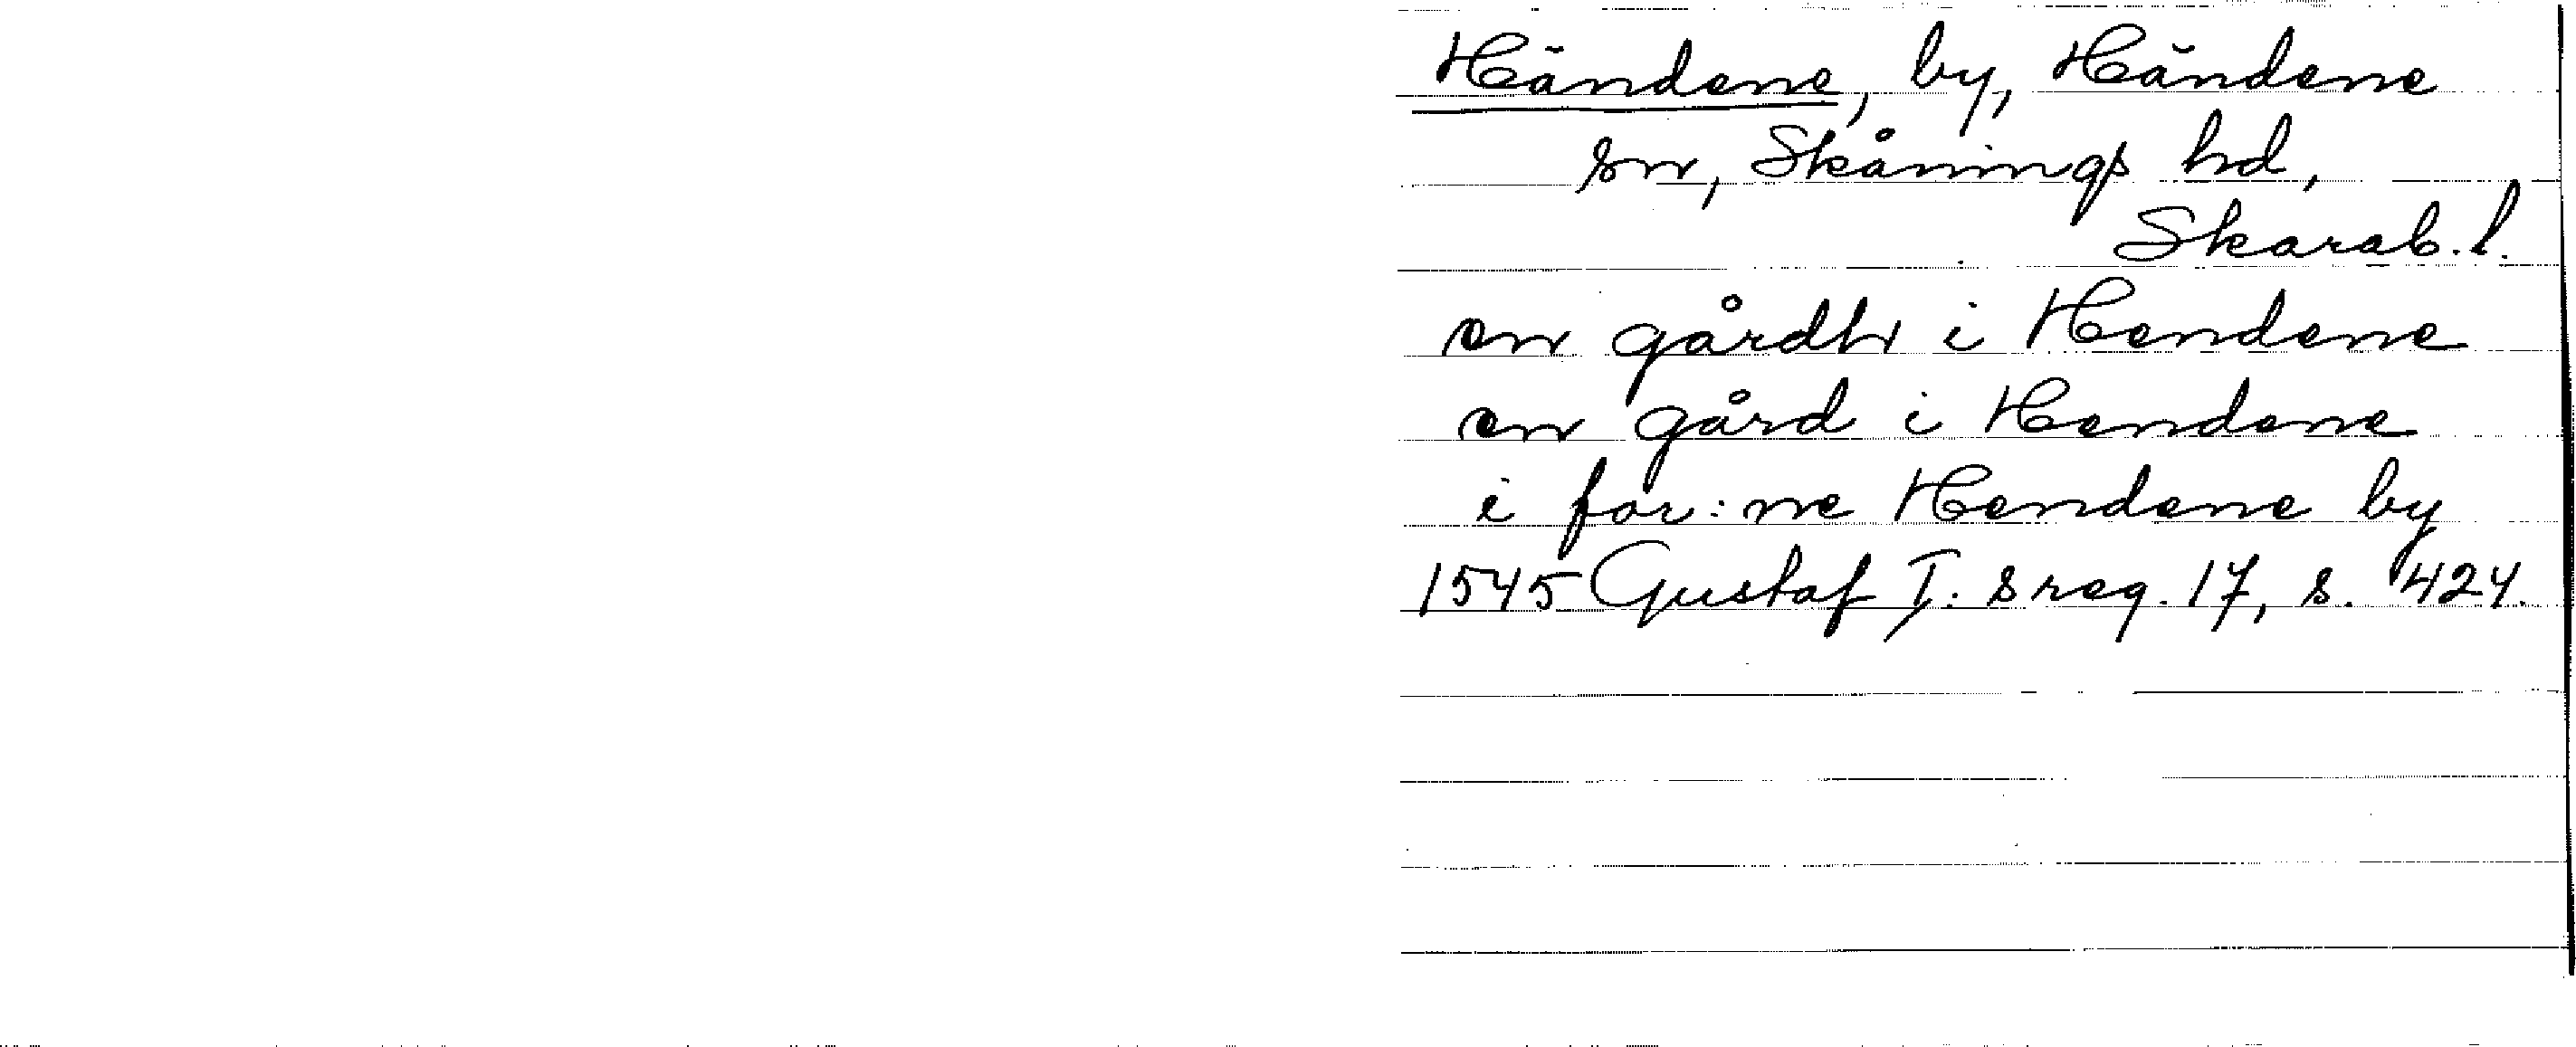 Händene, by, Händene
sn, Skånings hd,
Skarab. l.
en gårdh i Hendene
en gård i Hendene
i for:ne Hendene by
1545 Gustaf I:s reg. 17, s. 424.